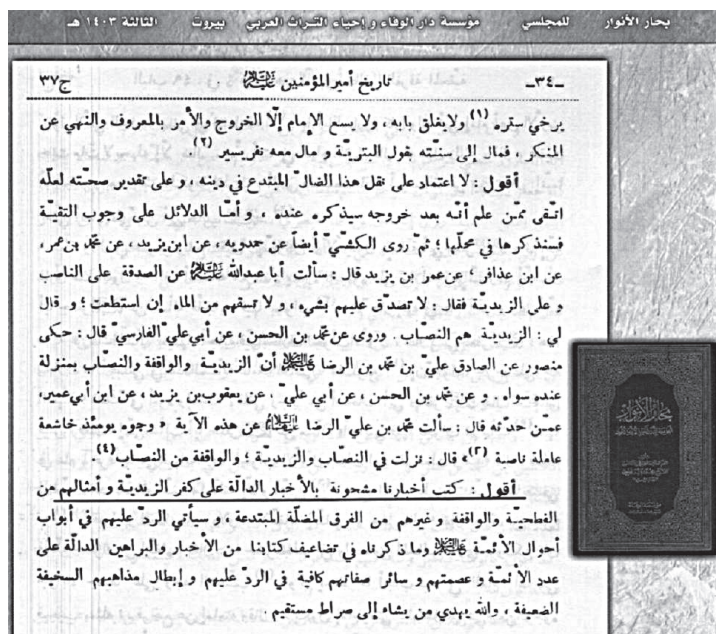 بحار الأنوار للمجلسي مؤسسة دار الوفاء و إحياء التراث العربي بيروت الثالثة ١٤٠٣ هـ
ـ٣٤ـ تاريخ أمير المؤمنين عليه السلام ج٣٧
يرخي ستره (١) ولايغلق بابه ، ولا يسع الإمام إلّا الخروج والأمر بالمعروف والنهي عن
المنكر . فمال إلى سنّته بقول البتريّة و مال معه نفر يسير (٢).
أقول : لا اعتماد على نقل هذا الضالّ المبتدع في دينه ، و على تقدير صحّته لعلّه
اتّقى ممّن علم أنّه بعد خروجه سيذكره عنده ، و أمّا الدلائل على وجوب التقيّة
فسنذكرها في محلّها ؛ ثمّ روى الكشّيّ أيضاً عن حمدويه ، عن ابن يزيد ، عن محمّد بن عمر،
عن ابن عذافر ، عن عمر بن يزيد قال : سألت أبا عبدالله عليه السلام عن الصدقة على الناصب
و على الزيديّة فقال : لا تصدّق عليهم بشيء ، و لا تسقهم من الماء إن استطعت ؛ و قال
لي : الزيديّة هم النصّاب . وروى عن محمّد بن الحسن ، عن أبي عليّ الفارسيّ قال : حكى
منصور عن الصادق عليّ بن محمّد بن الرضا عليهما السلام أنّ الزيديّة والواقفة والنصّاب بمنزلة
عنده سواء . و عن محمّد بن الحسن ، عن أبي عليّ ، عن يعقوب بن يزيد ، عن ابن أبي عمير،
عمّن حدّثه قال : سألت محمّد بن عليّ الرضا عليهما السلام عن هذه الآية « وجوه يومئذ خاشعة
عاملة ناصبة (٣)» قال : نزلت في النصّاب والزيديّة ؛ والواقفة من النصّاب(٤).
أقول : كتب أخبارنا مشحونة بالأخبار الدالّة على كفر الزيديّة و أمثالهم من
الفطحيّة والواقفة و غيرهم من الفرق المضلّة المبتدعة ، و سيأتي الردّ عليهم في أبواب
أحوال الأئمّة عليهم السلام وما ذكرناه في تضاعيف كتابنا من الأخبار والبراهين الدالّة على
عدد الأئمّة و عصمتهم و سائر صفاتهم كافية في الردّ عليهم و إبطال مذاهبهم السخيفة
الضعيفة ، والله يهدي من يشاء إلى صراط مستقيم
بحار الأنوار